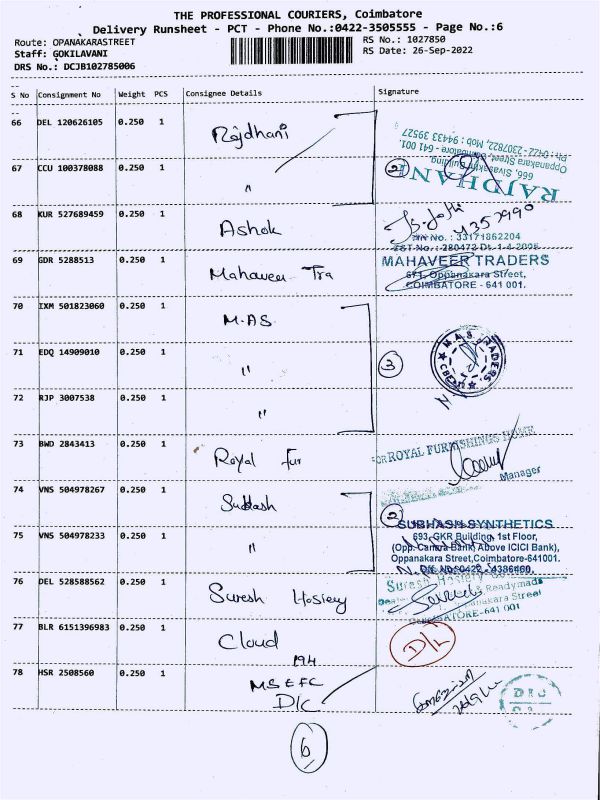 THE PROFESSIONAL COURIERS, Coimbatore
Delivery Runsheet - PCT - Phone No.:0422-3505555 - Page No.:6
Route: OPANAKARASTREET
RS No.: 1027850
Staff: GOKILAVANI
RS Date: 26-Sep-2022
DRS No.: DCJB102785006
S No Consignment No Weight PCS Consignee Details Signature
66 DEL 120626105 0.250 1 Rajdhani
Ph : 0422 - 2307822, Mob : 94433 39527
Oppanakara Street, Coimbatore - 641 001.
666, Sivasakthi Building
RAJDHANI
67 CCU 100378088 0.250 1 "
2
68 KUR 527689459 0.250 1 Ashok
TIN No. : 33171862204
69 GDR 5288513 0.250 1 Mahaveer Tra
MAHAVEER TRADERS
671, Oppanakara Street,
COIMBATORE - 641 001.
70 IXM 501823060 0.250 1 M.AS
71 EDQ 14909010 0.250 1 "
3
M.A.S. TRADERS
CBE
72 RJP 3007538 0.250 1 "
73 BWD 2843413 0.250 1 Royal fur
FOR ROYAL FURNISHINGS HOME
Manager
74 VNS 504978267 0.250 1 Subash
2
SUBHASH SYNTHETICS
693, GKR Building, 1st Floor,
(Opp. Canara Bank, Above ICICI Bank),
Oppanakara Street,Coimbatore-641001.
75 VNS 504978233 0.250 1 "
76 DEL 528588562 0.250 1 Suresh Hosiery
Suresh Hosiery
Readymade
Oppanakara Street
COIMBATORE-641 001
77 BLR 6151396983 0.250 1 Cloud
D/L
194
78 HSR 2508560 0.250 1 MSEFC
D/C
6